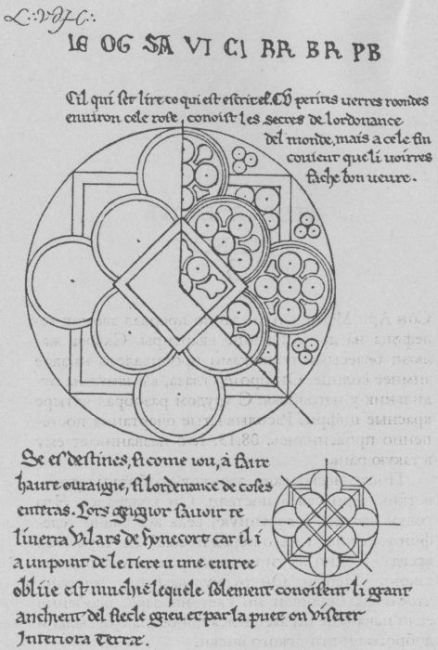 IE OG SA VI CI RR BR PB
Cil qui set lire co qui est escrit es CV petites uerres roondes
environ cele rose, conoist les secres de lordonance
del monde, mais a cele fin
couient que li voirres
fache bon ueure.
Se es destines, si come iou, a faire
haute ouraigne, si lordenance de coses
enteras. Lors gligior sauoir te
liuerra Vilars de Honecort car il i
a un point de le tiere u une entree
obliie est muchie lequele solement conoisent li grant
anchien del siecle grieu et par la puet on Viseter
Interiora Terrae.